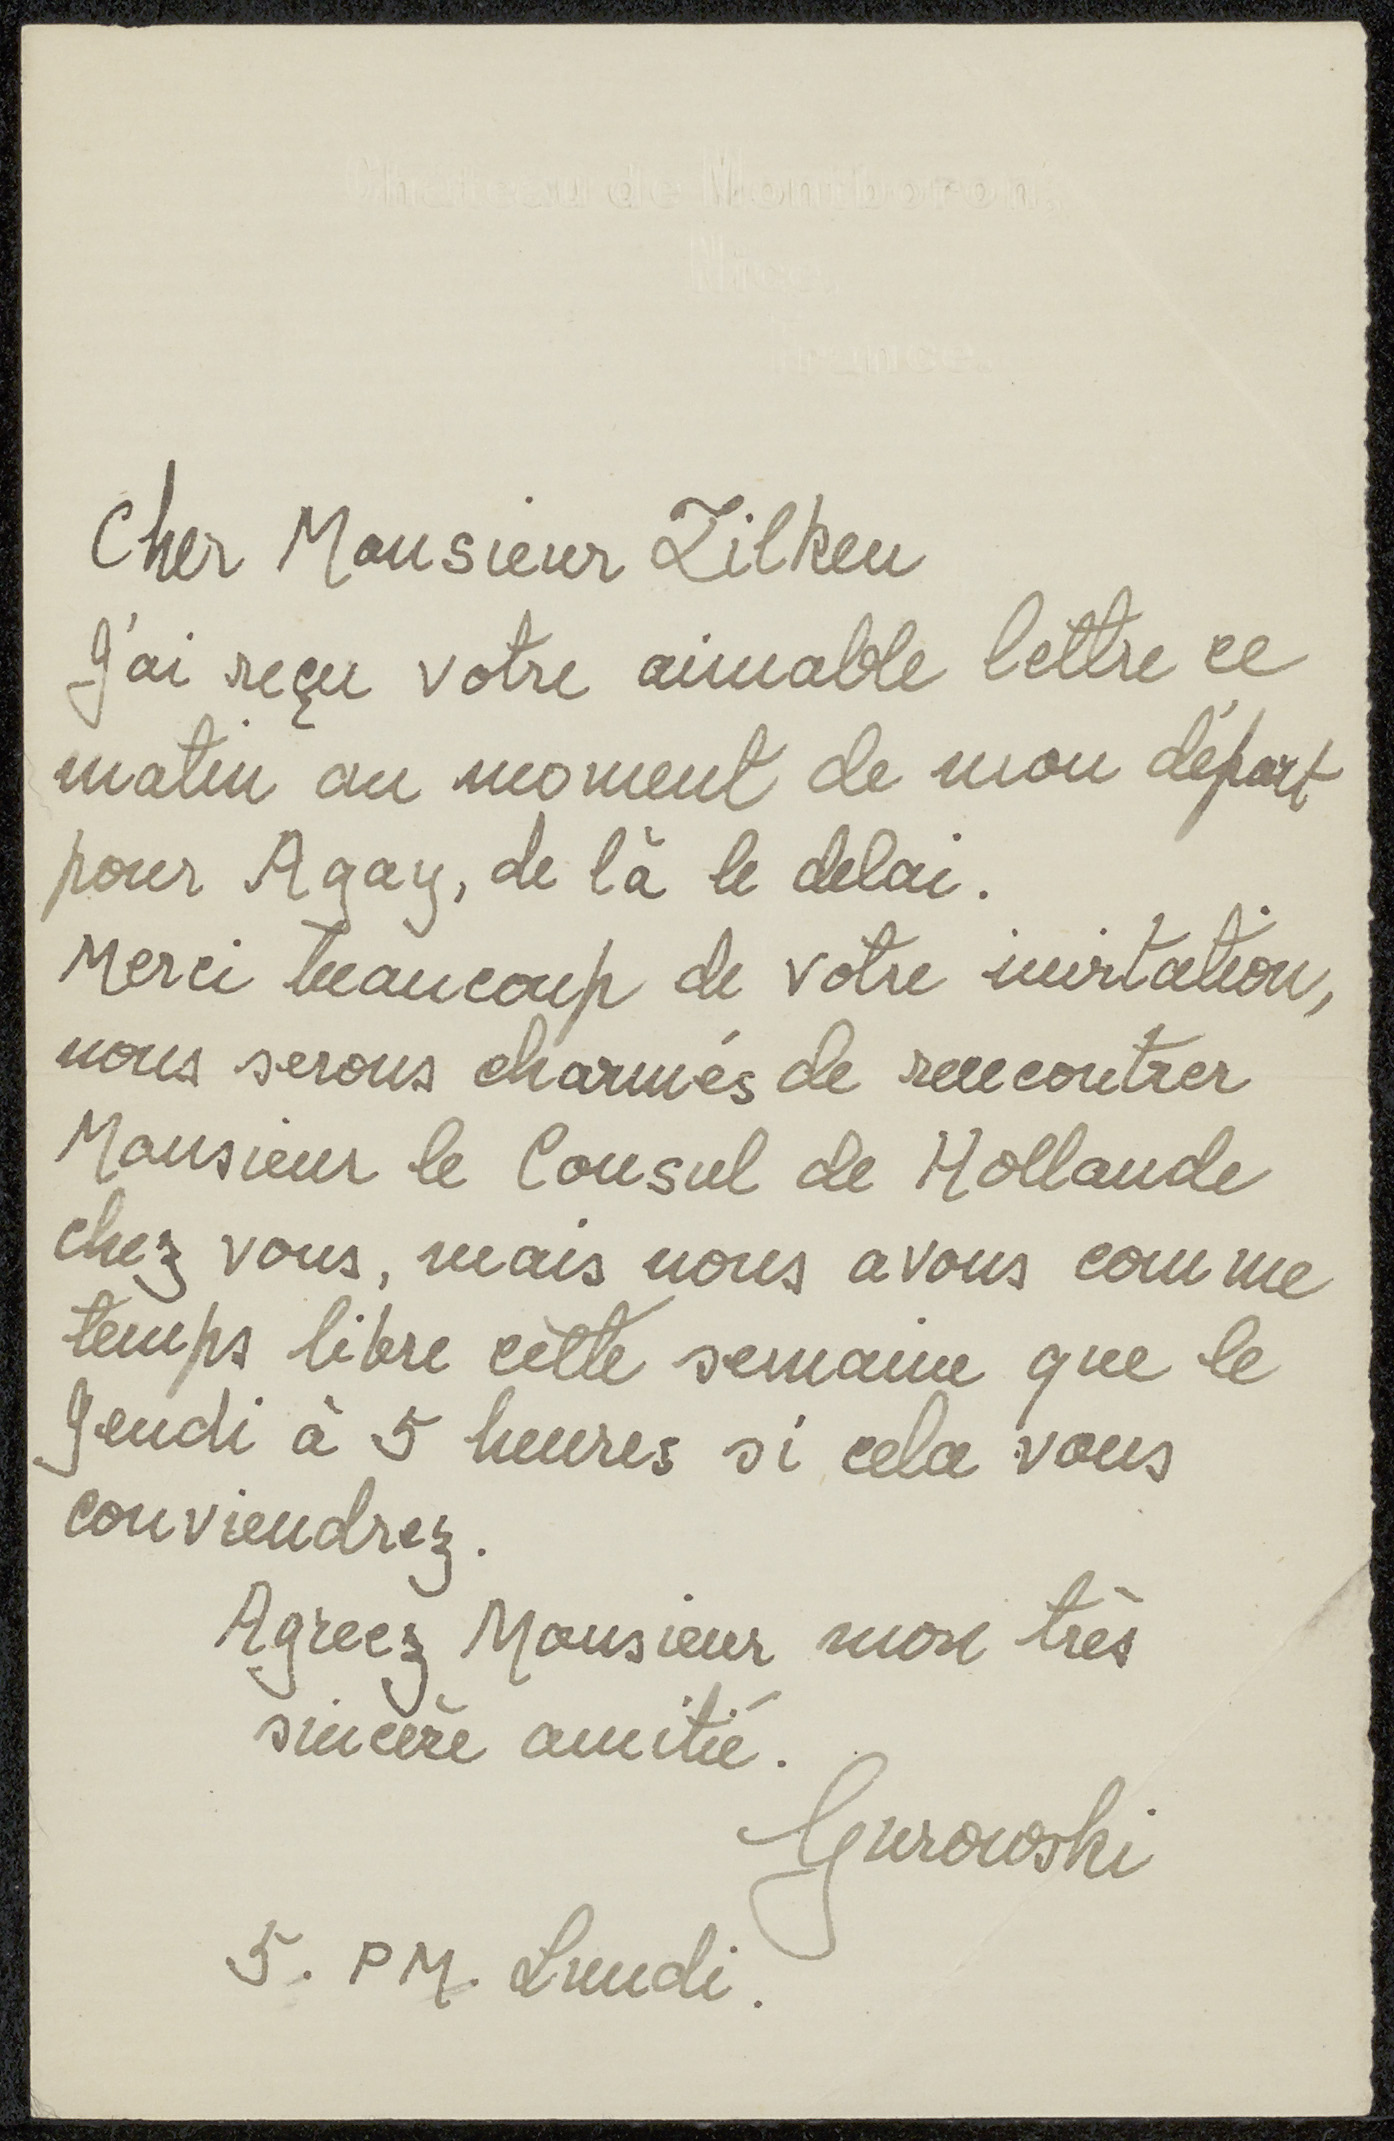 Chateau de Montboron.
Nice.
France.
Cher Monsieur Zilken
J'ai reçu votre aimable lettre ce
matin au moment de mon départ
pour Agay, de là le delai.
Merci beaucoup de votre invitation,
nous serons charmés de rencontrer
Monsieur le Consul de Hollande
chez vous, mais nous avons comme
temps libre cette semaine que le
Jeudi à 5 heures si cela vous
conviendrez.
Agreez Monsieur mon très
sincère amitié.
Gurowski
5. PM. Lundi.